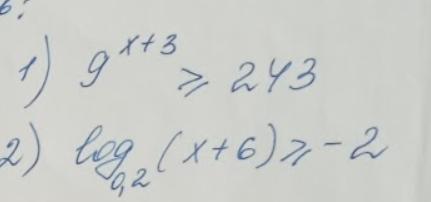 1) 9^{x+3} ⩾ 243
2) log_{0,2}(x+6) ⩾ -2